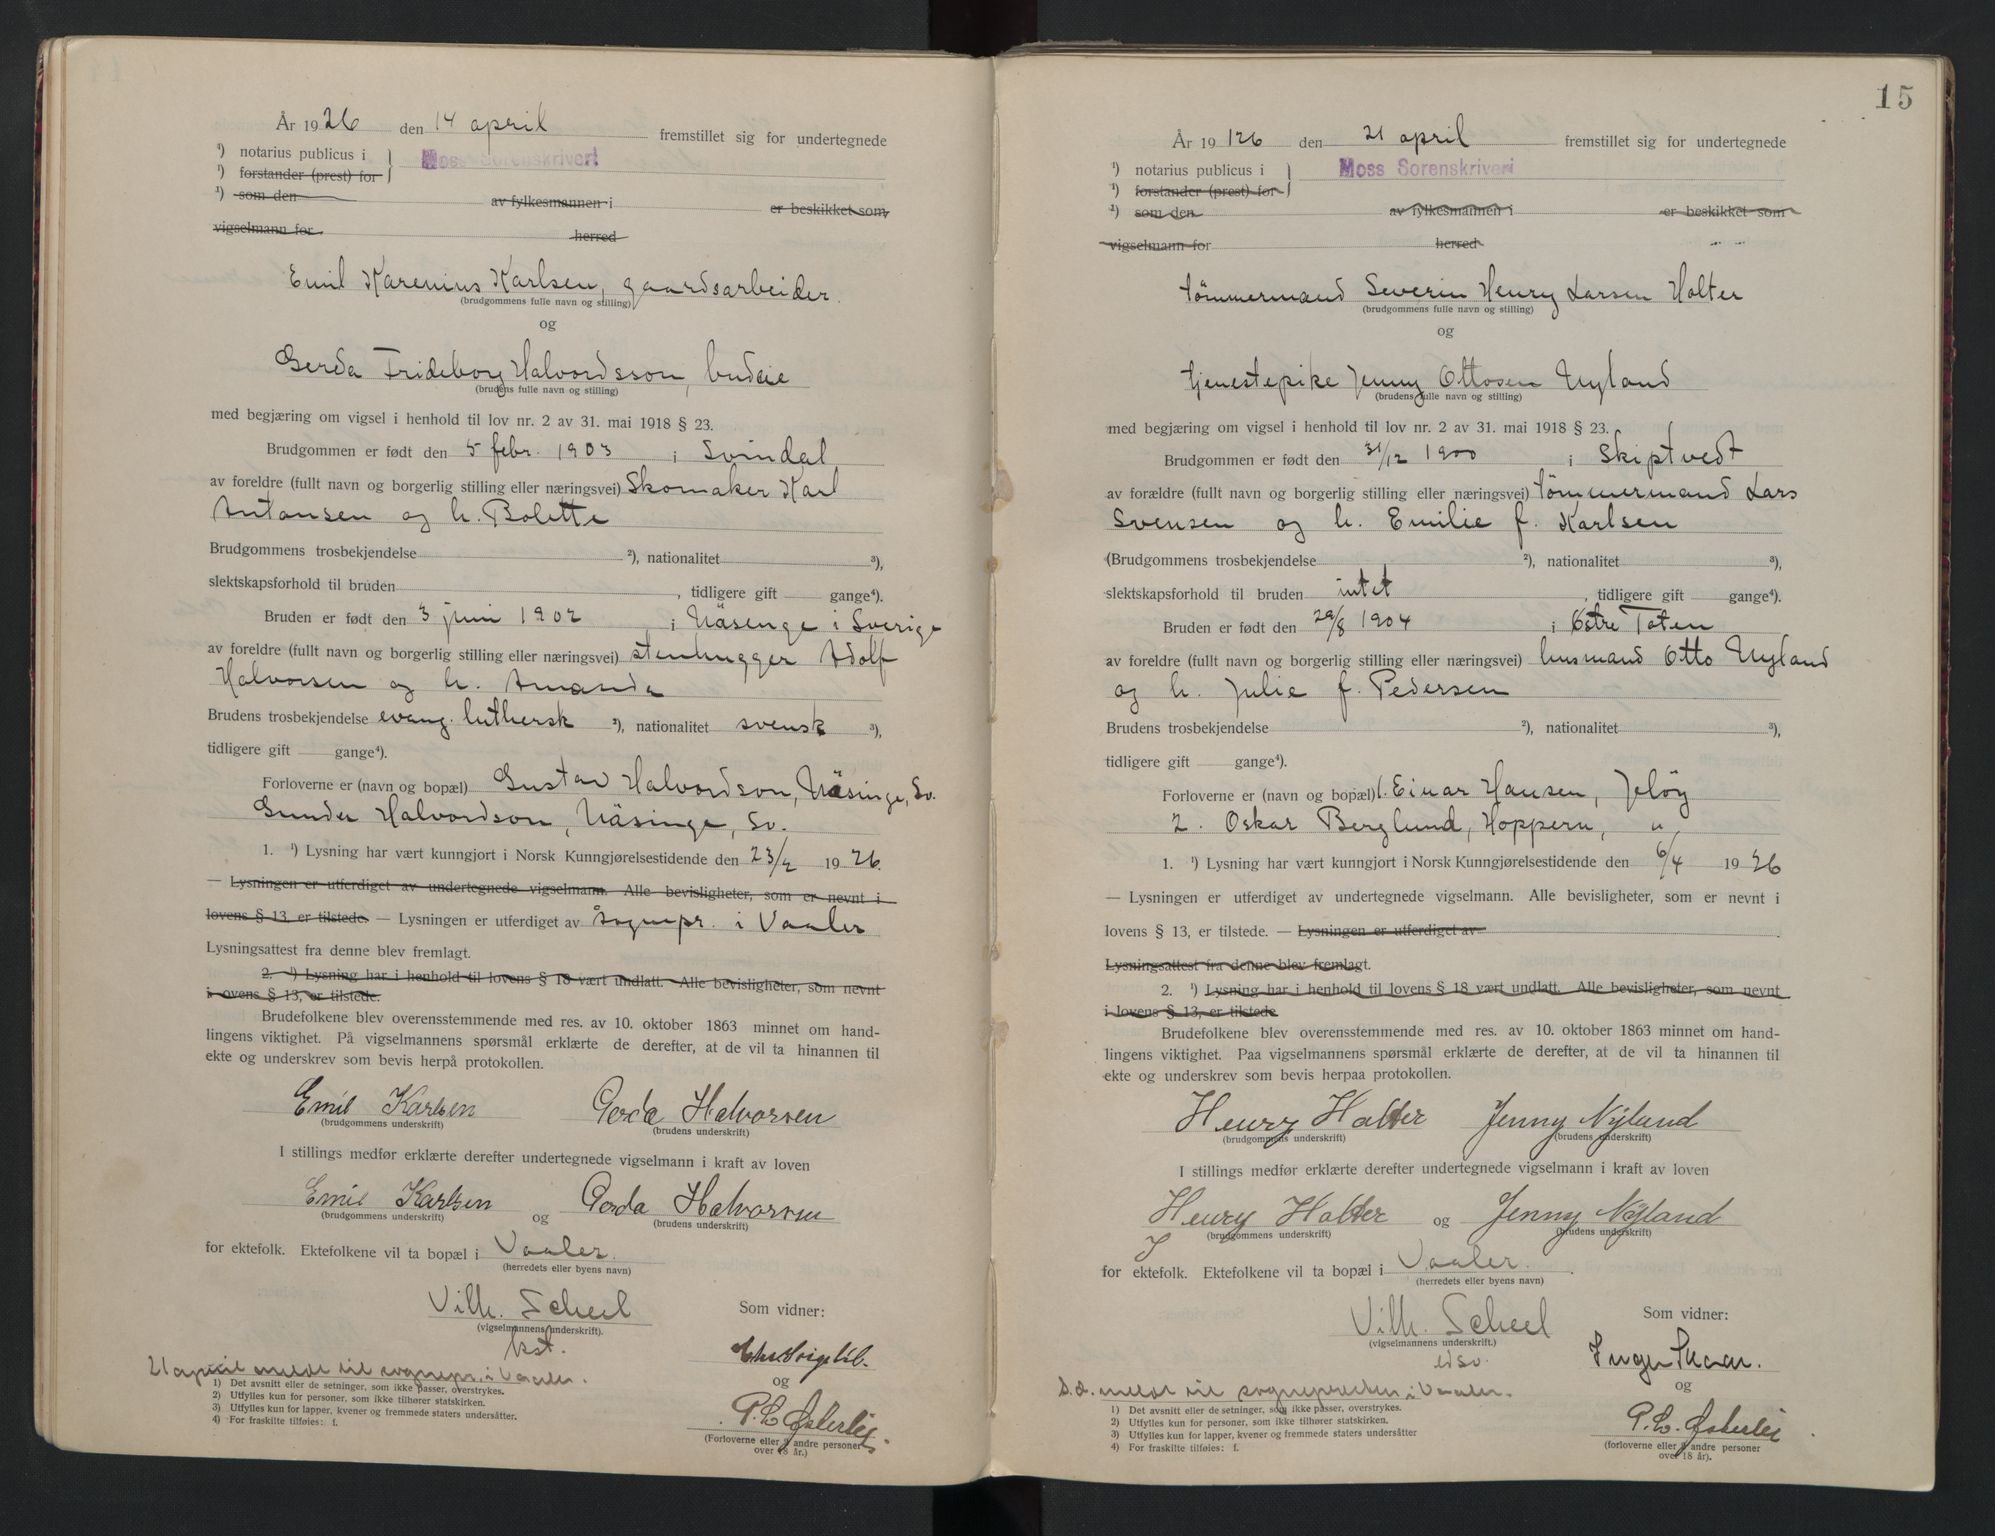 År 1926 den 14 april fremstillet sig for undertegnede
¹) notarius publicus i } Moss Sorenskriveri
¹) forstander (prest) for
¹) som den av fylkesmannen i er beskikket som
vigselmann for herred
Emil Karenius Karlsen, gaardsarbeider.
(brudgommens fulle navn og stilling)
og
Gerda Frideborg Halvordsson, budeie
(brudens fulle navn og stilling)
med begjæring om vigsel i henhold til lov nr. 2 av 31. mai 1918 § 23.
Brudgommen er født den 5 febr. 1903 i Svindal
av foreldre (fullt navn og borgerlig stilling eller næringsvei) Skomaker Karl
Antonsen og h. Bolette
Brudgommens trosbekjendelse ²), nationalitet ³),
slektskapsforhold til bruden , tidligere gift gange⁴).
Bruden er født den 3 juni 1902 i Näsenge i Sverige
av foreldre (fullt navn og borgerlig stilling eller næringsvei) stenhugger Adolf
Halvorsen og h. Amanda
Brudens trosbekjendelse evang. luthersk ²), nationalitet svensk ³),
tidligere gift gange⁴).
Forloverne er (navn og bopæl) Gustav Halvordson, Näsinge, Sv.
Gunder Halvordson, Näsinge, Sv.
1. ¹) Lysning har vært kunngjort i Norsk Kunngjørelsestidende den 23/2 1926.
— Lysningen er utferdiget av undertegnede vigselmann. Alle bevisligheter, som er nevnt i
lovens § 13, er tilstede. — Lysningen er utferdiget av sognepr. i Vaaler
Lysningsattest fra denne blev fremlagt.
2. ¹) Lysning har i henhold til lovens § 18 vært undlatt. Alle bevisligheter, som nevnt
i lovens § 13, er tilstede.
Brudefolkene blev overensstemmende med res. av 10. oktober 1863 minnet om hand-
lingens viktighet. På vigselmannens spørsmål erklærte de derefter, at de vil ta hinannen til
ekte og underskrev som bevis herpå protokollen.
Emil Karlsen Gerda Halvorsen
(brudgommens underskrift) (brudens underskrift)
I stillings medfør erklærte derefter undertegnede vigselmann i kraft av loven
Emil Karlsen og Gerda Halvorsen
(brudgommens underskrift) (brudens underskrift)
for ektefolk. Ektefolkene vil ta bopæl i Vaaler.
(herredets eller byens navn)
Vilh. Scheel Som vidner:
(vigselmannens underskrift).
kst.
og
P. E. Østerlei
(Forloverne eller 2 andre personer
over 18 år.)
21 april meldt til sognepr. i Vaaler.
1) Det avsnitt eller de setninger, som ikke passer, overstrykes.
2) Utfylles kun for personer, som ikke tilhører statskirken.
3) Utfylles kun for lapper, kvener og fremmede staters undersåtter.
4) For fraskilte tilføies: f.
15
År 19126 den 21 april fremstillet sig for undertegnede
¹) notarius publicus i } Moss Sorenskriveri
¹) forstander (prest) for
¹) som den av fylkesmannen i er beskikket som
vigselmann for herred
tömmermand Severin Henry Larsen Holter
(brudgommens fulle navn og stilling)
og
tjenestepike Jenny Ottosen Nyland
(brudens fulle navn og stilling)
med begjæring om vigsel i henhold til lov nr. 2 av 31. mai 1918 § 23.
Brudgommen er født den 31/12 1900 i Skiptvedt
av forældre (fullt navn og borgerlig stilling eller næringsvei) tömmermand Lars
Svensen og h. Emilie f. Karlsen
(Brudgommens trosbekjendelse ²), nationalitet ³),
slektskapsforhold til bruden intet , tidligere gift gange⁴).
Bruden er født den 29/8 1904 i Östre Toten
av foreldre (fullt navn og borgerlig stilling eller næringsvei) husmand Otto Nyland
og h. Julie f. Pedersen
Brudens trosbekjendelse ²), nationalitet ³),
tidligere gift gange⁴).
Forloverne er (navn og bopæl) 1. Einar Hansen, Jelöy
2. Oskar Berglund, Hoppern, "
1. ¹) Lysning har vært kunngjort i Norsk Kunngjørelsestidende den 6/4 1926
— Lysningen er utferdiget av undertegnede vigselmann. Alle bevisligheter, som er nevnt i
lovens § 13, er tilstede. — Lysningen er utferdiget av .
Lysningsattest fra denne blev fremlagt.
2. ¹) Lysning har i henhold til lovens § 18 vært undlatt. Alle bevisligheter, som nevnt
i lovens § 13, er tilstede
Brudefolkene blev overensstemmende med res. av 10. oktober 1863 minnet om hand-
lingens viktighet. Paa vigselmannens spørsmål erklærte de derefter, at de vil ta hinannen til
ekte og underskrev som bevis herpaa protokollen.
Henry Holter Jenny Nyland
(brudgommens underskrift) (brudens underskrift)
I stillings medfør erklærte derefter undertegnede vigselmann i kraft av loven
Henry Holter og Jenny Nyland
(brudgommens underskrift) (brudens underskrift)
for ektefolk. Ektefolkene vil ta bopæl i Vaaler.
(herredets eller byens navn)
Vilh. Scheel Som vidner:
(vigselmannens underskrift).
Inger Skaar.
og
P. E. Østerlei
(forloverne eller 2 andre personer
over 18 år).
D. d. meldt til sognepresten i Vaaler.
1) Det avsnitt eller de setninger, som ikke passer, overstrykes.
2) Utfylles kun for personer, som ikke tilhører statskirken.
3) Utfylles kun for lapper, kvener og fremmede staters undersåtter
4) For fraskilte tilføies: f.